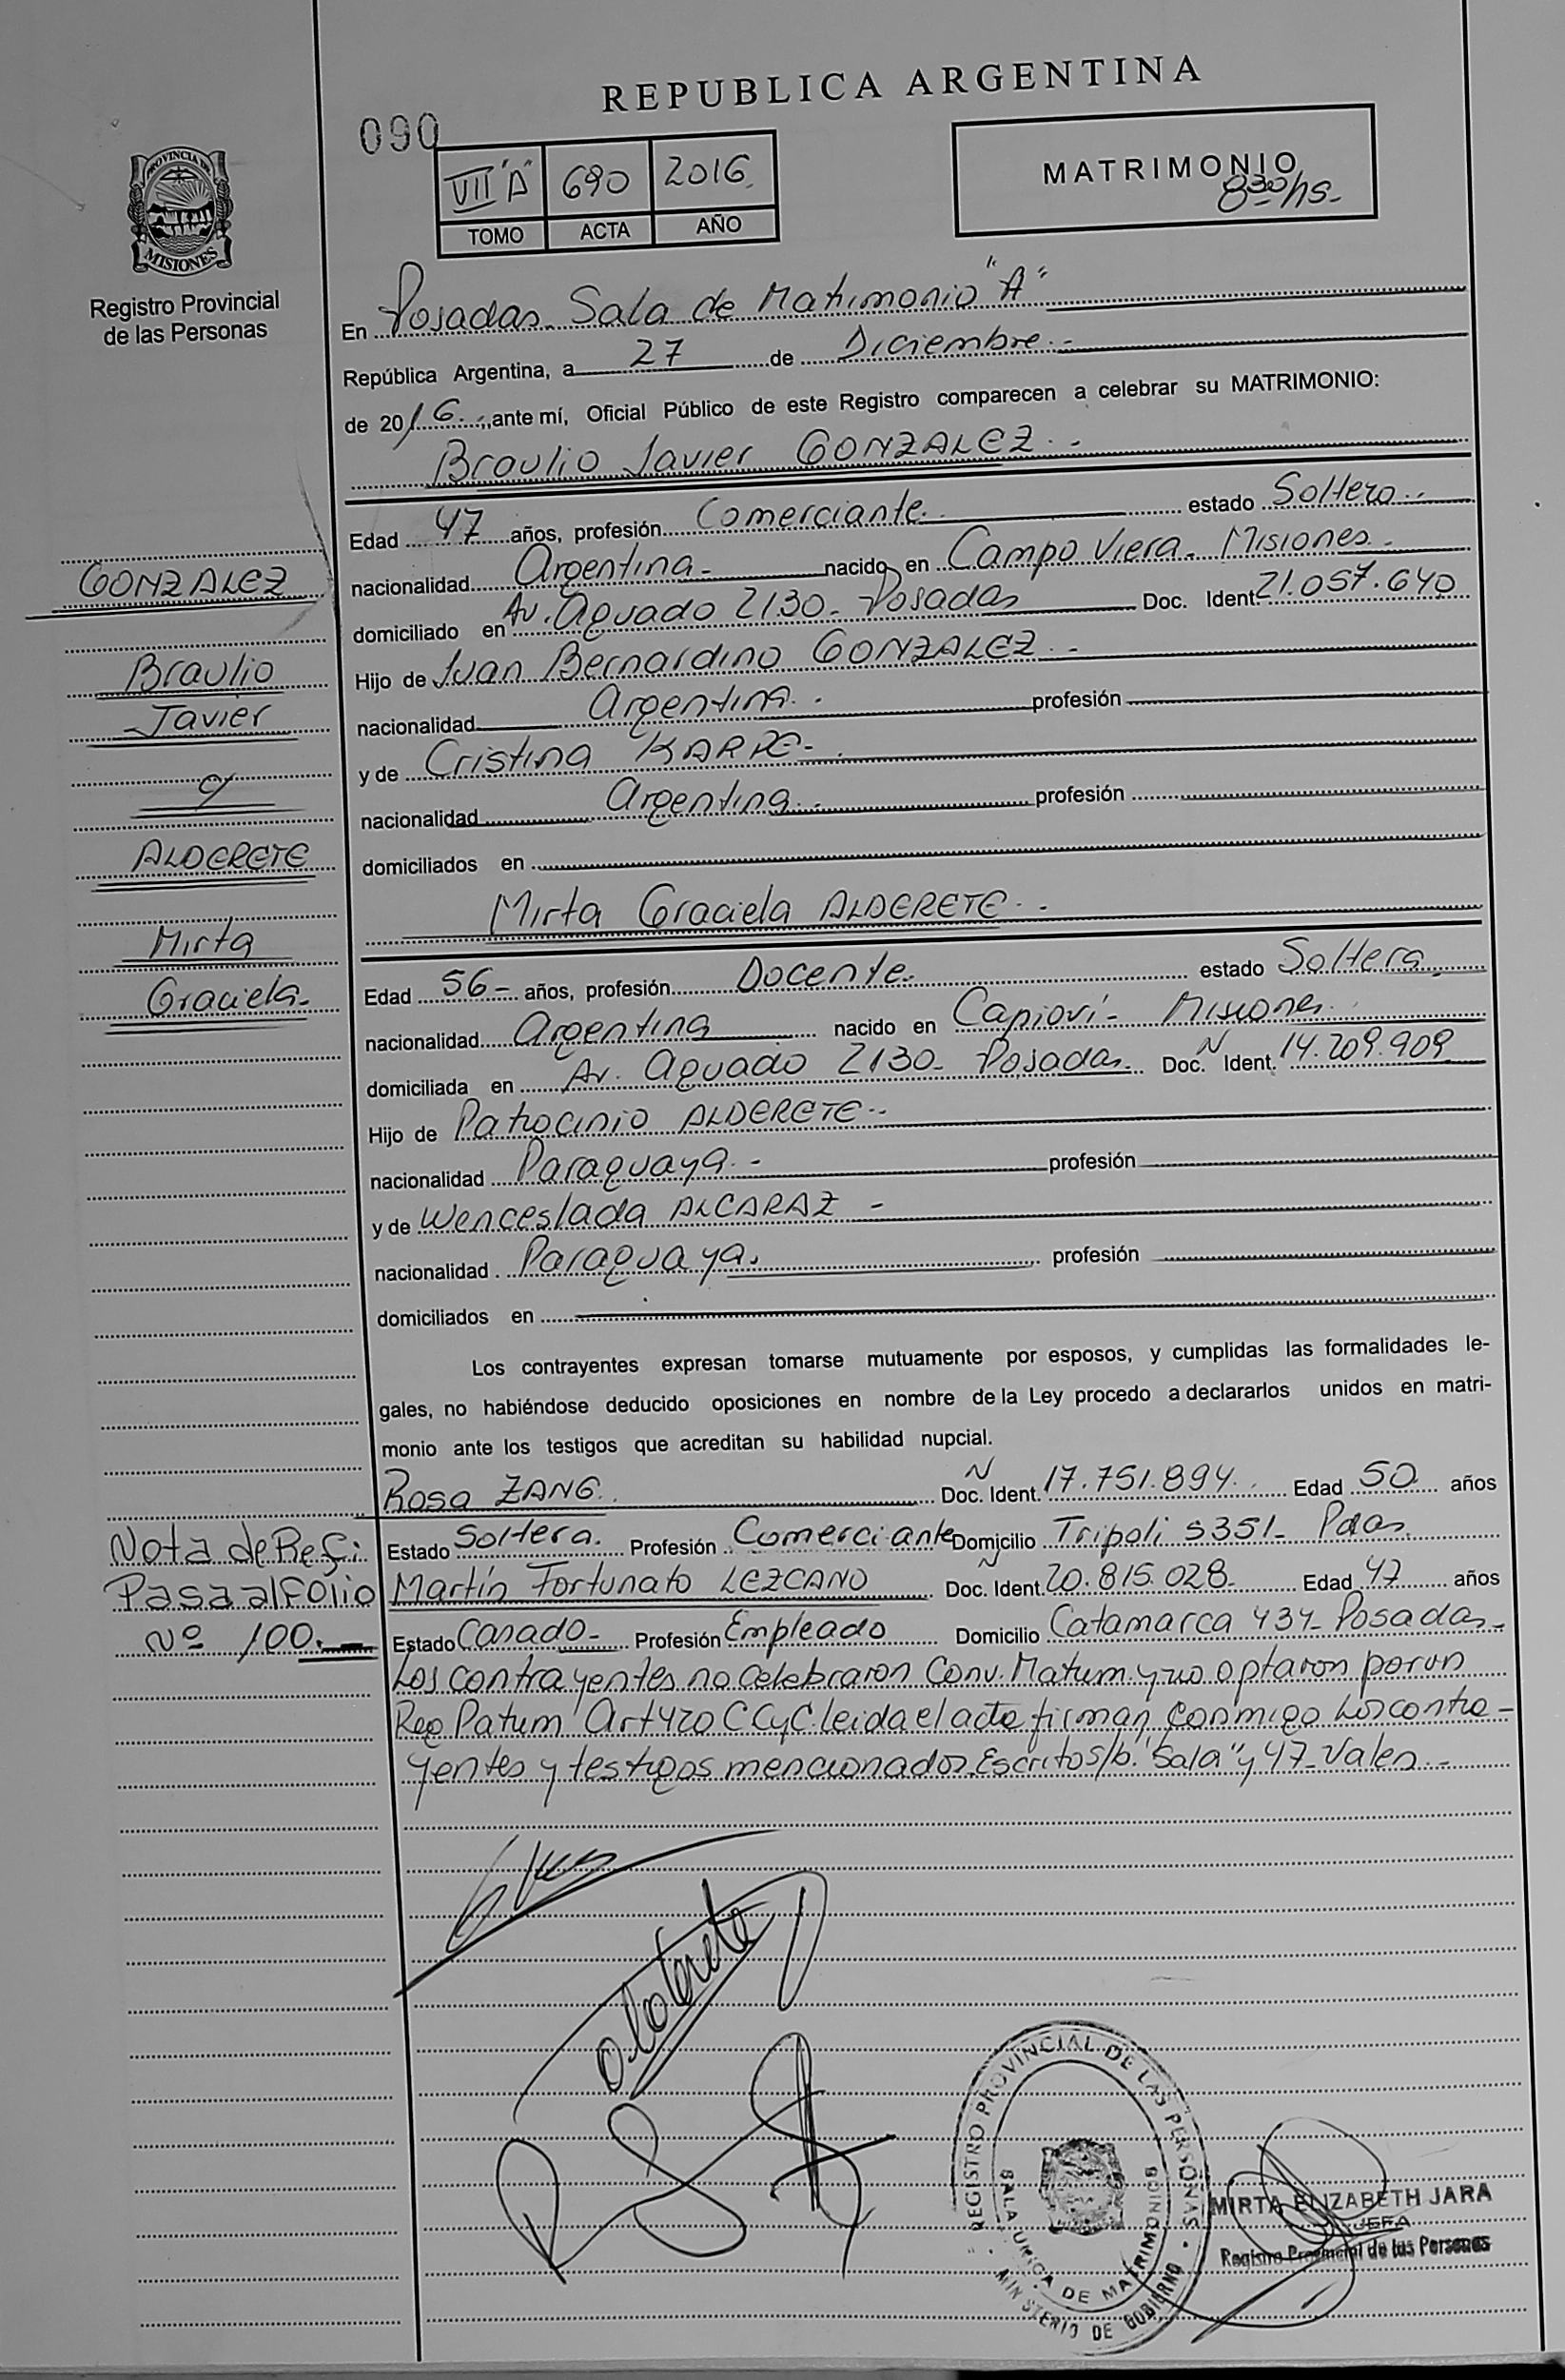 REPUBLICA ARGENTINA
090
VII "A" 690 2016
TOMO ACTA AÑO
MATRIMONIO
8:30 hs.
PROVINCIA DE
MISIONES
Registro Provincial
de las Personas
En Posadas. Sala de Matrimonio "A"
República Argentina, a 27 de Diciembre.-
de 2016.,ante mí, Oficial Público de este Registro comparecen a celebrar su MATRIMONIO:
Braulio Javier GONZALEZ.-
Edad 47 años, profesión Comerciante. estado Soltero.-
nacionalidad Argentina- nacido en Campo Viera- Misiones-
domiciliado en Av. Aguado 2130- Posadas Doc. Ident. 21.057.640
Hijo de Juan Bernardino GONZALEZ.-
nacionalidad Argentina.- profesión
y de Cristina KARPE-
nacionalidad Argentina.- profesión
domiciliados en
Mirta Graciela ALDERETE.-
Edad 56- años, profesión Docente. estado Soltera
nacionalidad Argentina nacido en Capioví- Misiones.
domiciliada en Av. Aguado 2130- Posadas. Doc. N Ident. 14.209.909
Hijo de Patrocinio ALDERETE.-
nacionalidad Paraguaya.- profesión
y de Wenceslada ALCARAZ -
nacionalidad Paraguaya. profesión
domiciliados en
Los contrayentes expresan tomarse mutuamente por esposos, y cumplidas las formalidades le-
gales, no habiéndose deducido oposiciones en nombre de la Ley procedo a declararlos unidos en matri-
monio ante los testigos que acreditan su habilidad nupcial.
Rosa ZANG. Doc. N Ident. 17.751.894. Edad 50 años
Estado Soltera. Profesión Comerciante Domicilio Tripoli 5351- Pdas.
Martín Fortunato LEZCANO Doc. N Ident. 20.815.028- Edad 47 años
Estado Casado- Profesión Empleado Domicilio Catamarca 434- Posadas-
Los contrayentes no celebraron Conv. Matrim. y no optaron por un
Reg. Patrim. Art 420 CCyC. leida el acta firman conmigo los contra-
yentes y testigos mencionados. Escrito s/b: "Sala" y 47- Valen.-
GONZALEZ
Braulio
Javier
c/
ALDERETE
Mirta
Graciela-
Nota de Ref:
Pasa al Folio
Nº 100.-
alderete
REGISTRO PROVINCIAL DE LAS PERSONAS
SALA UNICA DE MATRIMONIOS
MINISTERIO DE GOBIERNO
MIRTA ELIZABETH JARA
JEFA
Registro Provincial de las Personas